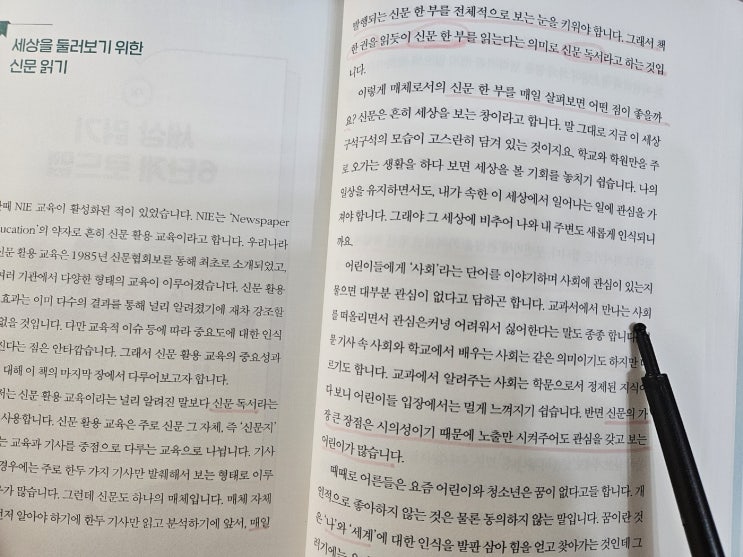 세상을 둘러보기 위한
신문 읽기
NIE 교육이 활성화된 적이 있었습니다. NIE는 'Newspaper
의 약자로 흔히 신문 활용 교육이라고 합니다. 우리나라
신문 활용 교육은 1985년 신문협회보를 통해 최초로 소개되었고,
여러 기관에서 다양한 형태의 교육이 이루어졌습니다. 신문 활용
효과는 이미 다수의 결과를 통해 널리 알려졌기에 재차 강조할
없을 것입니다. 다만 교육적 이슈 등에 따라 중요도에 대한 인식
진다는 짐은 안타깝습니다. 그래서 신문 활용 교육의 중요성과
대해 이 책의 마지막 장에서 다루어보고자 합니다.
저는 신문 활용 교육이라는 널리 알려진 말보다 신문 독서라는
사용합니다. 신문 활용 교육은 주로 신문 그 자체, 즉 '신문지'
는 교육과 기사를 중점으로 다루는 교육으로 나뉩니다. 기사
경우에는 주로 한두 가지 기사만 발췌해서 보는 형태로 이루
가 많습니다. 그런데 신문도 하나의 매체입니다. 매체 자체
먼저 알아야 하기에 한두 기사만 읽고 분석하기에 앞서, 매일
발행되는 신문 한 부를 전체적으로 보는 눈을 키워야 합니다. 그래서 책
한 권을 읽듯이 신문 한 부를 읽는다는 의미로 신문 독서라고 하는 것입
니다.
이렇게 매체로서의 신문 한 부를 매일 살펴보면 어떤 점이 좋을까
요? 신문은 흔히 세상을 보는 창이라고 합니다. 말 그대로 지금 이 세상
구석구석의 모습이 고스란히 담겨 있는 것이지요. 학교와 학원만을 주
로 오가는 생활을 하다 보면 세상을 볼 기회를 놓치기 쉽습니다. 나의
일상을 유지하면서도, 내가 속한 이 세상에서 일어나는 일에 관심을 가
져야 합니다. 그래야 그 세상에 비추어 나와 내 주변도 새롭게 인식되니
까요.
어린이들에게 '사회'라는 단어를 이야기하며 사회에 관심이 있는지
물으면 대부분 관심이 없다고 답하곤 합니다. 교과서에서 만나는 사회
를 떠올리면서 관심은커녕 어려워서 싫어한다는 말도 종종 합니다.
문 기사 속 사회와 학교에서 배우는 사회는 같은 의미이기도 하지만
르기도 합니다. 교과에서 알려주는 사회는 학문으로서 정제된 지식이
다 보니 어린이들 입장에서는 멀게 느껴지기 쉽습니다. 반면 신문의 가
장 큰 장점은 시의성이기 때문에 노출만 시켜주어도 관심을 갖고 보는
어린이가 많습니다.
때때로 어른들은 요즘 어린이와 청소년은 꿈이 없다고들 합니다. 개
인적으로 좋아하지 않는 것은 물론 동의하지 않는 말입니다. 꿈이란 것
은 '나'와 '세계'에 대한 인식을 발판 삼아 힘을 얻고 찾아가는 것인데 그